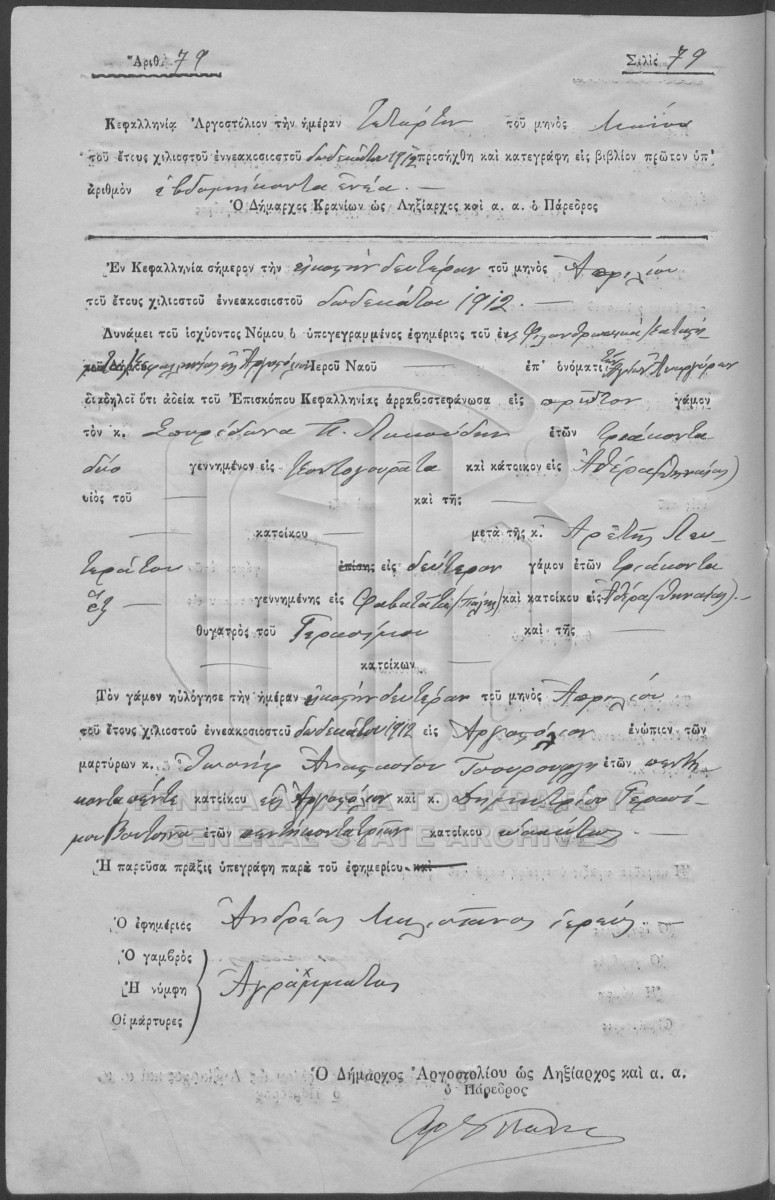 Ἀριθ. 79 Σελὶς 79
Κεφαλληνίᾳ Ἀργοστόλιον τὴν ἡμέραν τετάρτην τοῦ μηνὸς Μαΐου
τοῦ ἔτους χιλιοστοῦ ἐννεακοσιοστοῦ δωδεκάτου 1912 προσήχθη καὶ κατεγράφη εἰς βιβλίον πρῶτον ὑπ'
ἀριθμὸν ἑβδομήκοντα ἐννέα. —
Ὁ Δήμαρχος Κρανίων ὡς Ληξίαρχος καὶ α. α. ὁ Πάρεδρος
Ἐν Κεφαλληνίᾳ σήμερον τὴν εἰκοστὴν δευτέραν τοῦ μηνὸς Ἀπριλίου
τοῦ ἔτους χιλιοστοῦ ἐννεακοσιοστοῦ δωδεκάτου 1912. —
Δυνάμει τοῦ ἰσχύοντος Νόμου ὁ ὑπογεγραμμένος ἐφημέριος τοῦ ἐν
Ἱεροῦ Ναοῦ — ἐπ' ὀνόματι τῶν Ἁγίων Ἀναργύρων
διαδηλοῖ ὅτι ἀδείᾳ τοῦ Ἐπισκόπου Κεφαλληνίας ἀρραβοστεφάνωσα εἰς πρῶτον γάμον
τὸν κ. Σπυρίδωνα Π. ἐτῶν τριάκοντα
δύο γεννημένον εἰς Κοντογουράτα καὶ κάτοικον εἰς Ἀθέρα (Θηναίας)
υἱὸς τοῦ — καὶ τῆς —
— κατοίκου — μετὰ τῆς κ. Ἀρετῆς Λευ-
τεράτου ἐπίσης εἰς δεύτερον γάμον ἐτῶν τριάκοντα
ἓξ — γεννημένης εἰς Φαβατάτα (Πάλης) καὶ κατοίκου εἰς Ἀθέρα (Θηναίας). —
θυγατρὸς τοῦ Γερασίμου καὶ τῆς —
— κατοίκων —
Τὸν γάμον ηὐλόγησε τὴν ἡμέραν εἰκοστὴν δευτέραν τοῦ μηνὸς Ἀπριλίου
τοῦ ἔτους χιλιοστοῦ ἐννεακοσιοστοῦ δωδεκάτου 1912 εἰς Ἀργοστόλιον ἐνώπιον τῶν
μαρτύρων κ. Ἰωσὴφ Ἀναστασίου ἐτῶν πεντή-
κοντα πέντε κατοίκου εἰς Ἀργοστόλιον καὶ κ. Δημητρίου Γερασί-
μου ἐτῶν πεντήκοντα τριῶν κατοίκου ὡσαύτως. —
Ἡ παροῦσα πρᾶξις ὑπεγράφη παρὰ τοῦ ἐφημερίου καὶ
Ὁ ἐφημέριος Ἀνδρέας ἱερεύς
Ὁ γαμβρὸς
Ἡ νύμφη Ἀγράμματος
Οἱ μάρτυρες
Ὁ Δήμαρχος Ἀργοστολίου ὡς Ληξίαρχος καὶ α. α.
ὁ Πάρεδρος
ΓΕΝΙΚΑ ΑΡΧΕΙΑ ΤΟΥ ΚΡΑΤΟΥΣ
GENERAL STATE ARCHIVES